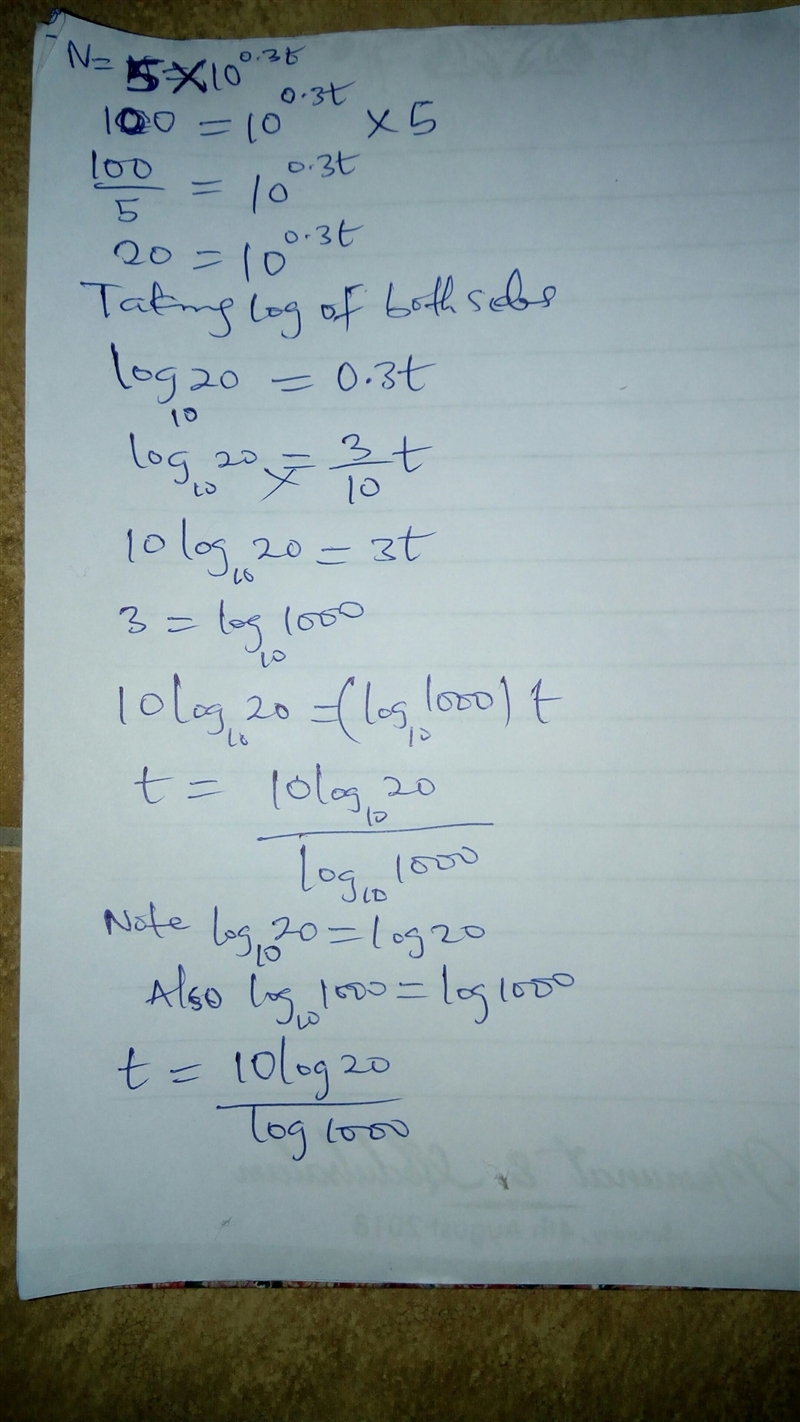 N = 5 × 10^0.3t
100 = 10^0.3t × 5
100/5 = 10^0.3t
20 = 10^0.3t
Taking log of both sides
log₁₀20 = 0.3t
log₁₀20 = 3/10 t
10 log₁₀20 = 3t
3 = log₁₀1000
10 log₁₀20 = (log₁₀1000) t
t = 10 log₁₀20 / log₁₀1000
Note log₁₀20 = log 20
Also log₁₀1000 = log 1000
t = 10 log 20 / log 1000
4th August 2018